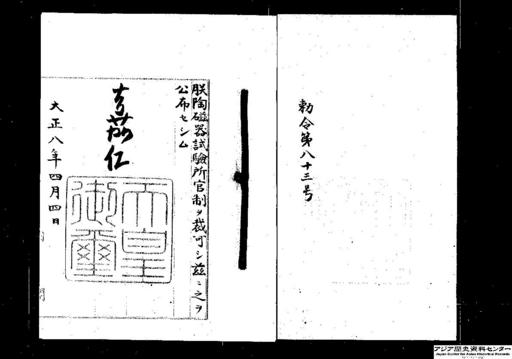 勅令第八十三号
朕陶磁器試驗所官制ヲ裁可シ茲ニ之ヲ
公布セシム
嘉仁
天皇
御璽
大正八年四月四日
アジア歴史資料センター
Japan Center for Asian Historical Records